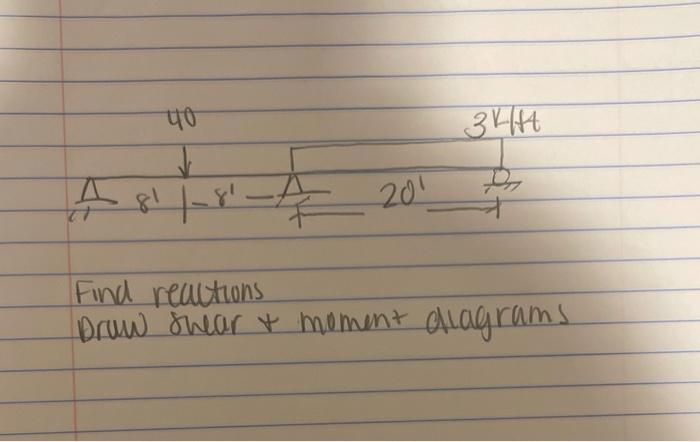 40
3k/ft
8' 8' 20'
Find reactions
Draw shear & moment diagrams